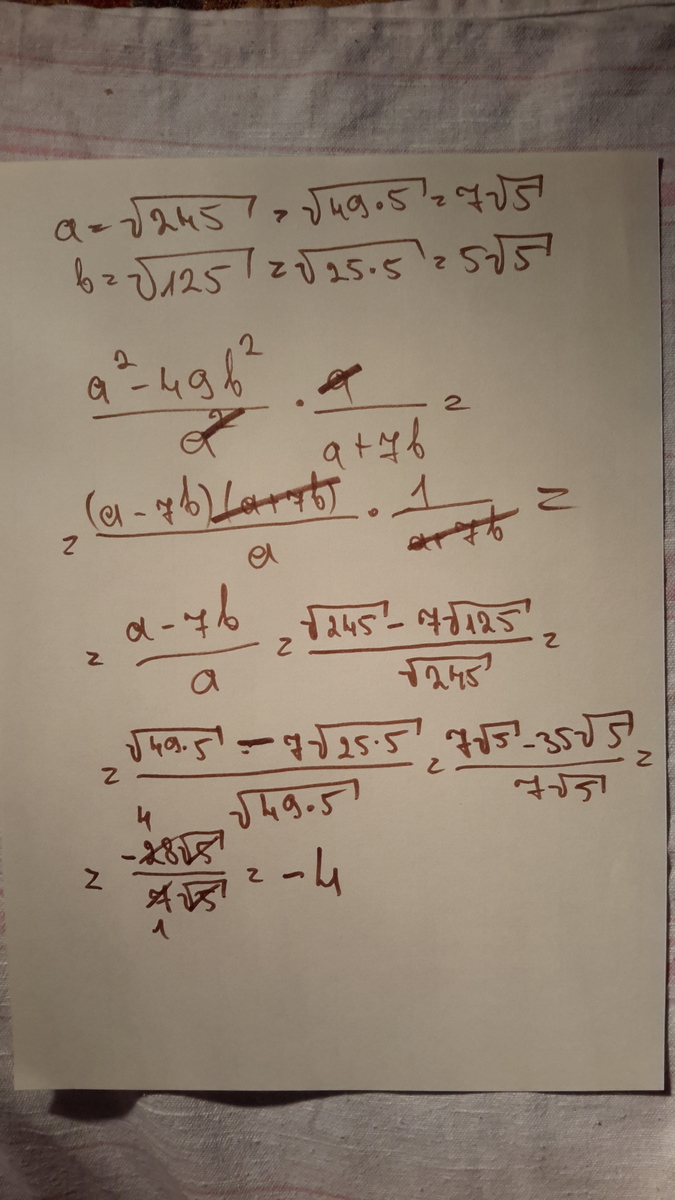 a = √245 = √49·5 = 7√5
b = √125 = √25·5 = 5√5
a² - 49b² / a² · a / a + 7b =
= (a - 7b)(a + 7b) / a · 1 / a + 7b =
= a - 7b / a = √245 - 7√125 / √245 =
= √49·5 - 7√25·5 / √49·5 = 7√5 - 35√5 / 7√5 =
4
= -28√5 / 7√5 = -4
1